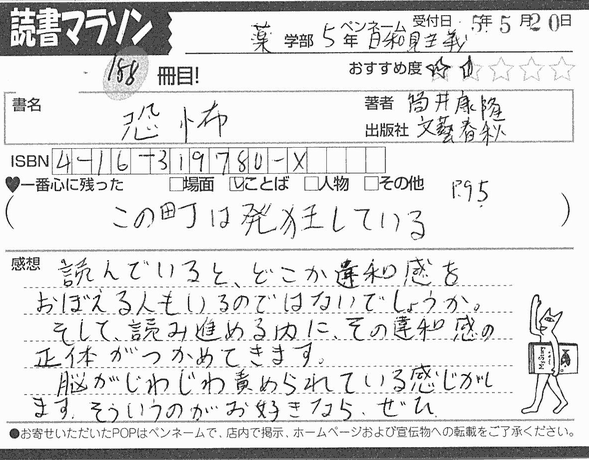 読書マラソン
薬 学部 5 年 ペンネーム 日和見主義 受付日: 5年 5 月 20 日
188 冊目!
おすすめ度 ★ ★ ☆ ☆ ☆
書名 恐怖
著者 筒井康隆
出版社 文藝春秋
ISBN 4-16-319780-X
♥一番心に残った □場面 ☑ことば □人物 □その他 P.95
(この町は発狂している)
感想
読んでいると、どこか違和感を
おぼえる人もいるのではないでしょうか。
そして、読み進める内に、その違和感の
正体がつかめてきます。
脳がじわじわ責められている感じがし
ます。そういうのがお好きなら、ぜひ
●お寄せいただいたPOPはペンネームで、店内で掲示、ホームページおよび宣伝物への転載をご了承ください。